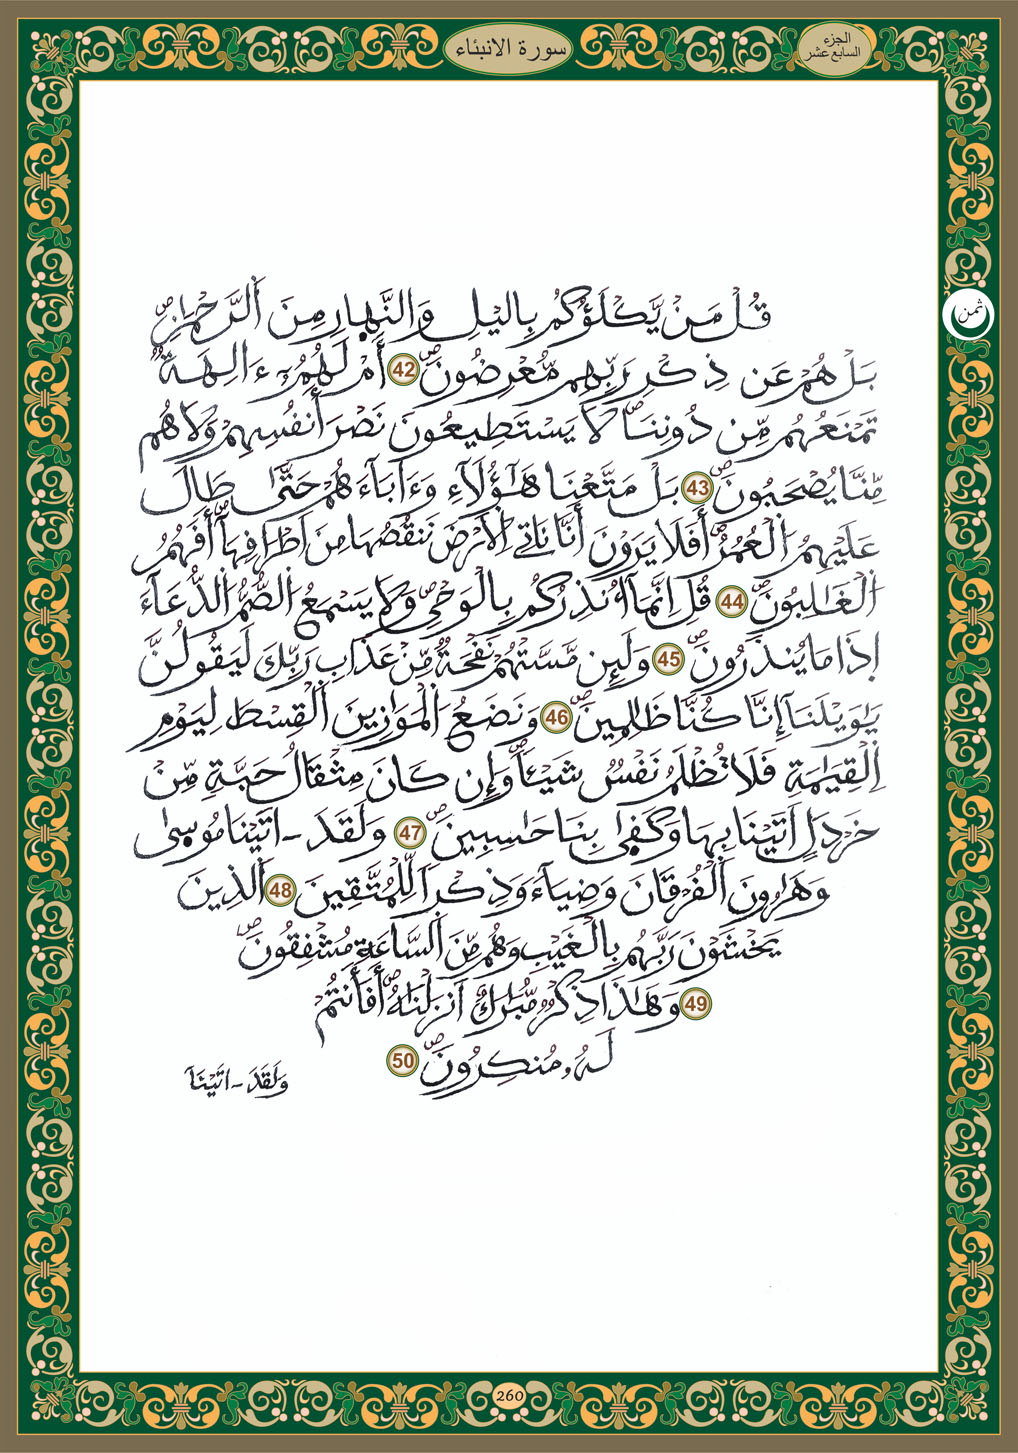 سورة الانبئاء
الجزء
السابع عشر
ثمن
قُلْ مَنْ يَّكْلَؤُكُم بِاليْلِ وَالنَّهارِ مِنَ اَلرَّحْمَٰنِ صۖ
بَلْ هُمْ عَن ذِكْرِ رَبِّهِم مُّعْرِضُونَ صۖ 42 أَمْ لَهُمُۥٓ ءَالِهَةٌ
تَمْنَعُهُم مِّن دُونِنَا صۖ لَا يَسْتَطِيعُونَ نَصْرَ أَنفُسِهِمْ وَلَا هُم
مِّنَّا يُصْحَبُونَ صۖ 43 بَلْ مَتَّعْنَا هَٰٓؤُلَآءِ وَءَابَآءَهُمْ حَتَّىٰ طَالَ
عَلَيْهِمُ اُلْعُمُرُ صۖ أَفَلَا يَرَوْنَ أَنَّا نَاتِے اِلْأَرْضَ نَنقُصُهَا مِنَ اَطْرَافِهَآ صۖ أَفَهُمُ
اُلْغَٰلِبُونَ صۖ 44 قُلِ اِنَّمَآ أُنذِرُكُم بِالْوَحْيِ صۖ وَلَا يَسْمَعُ اُلصُّمُّ اُلدُّعَآءَ
اِذَا مَا يُنذَرُونَ صۖ 45 وَلَئِن مَّسَّتْهُمْ نَفْحَةٌ مِّنْ عَذَابِ رَبِّكَ لَيَقُولُنَّ
يَٰوَيْلَنَآ إِنَّا كُنَّا ظَٰلِمِينَ صۖ 46 وَنَضَعُ اُلْمَوَٰزِينَ اَلْقِسْطَ لِيَوْمِ
اِلْقِيَٰمَةِ فَلَا تُظْلَمُ نَفْسٌ شَيْئاً صۖ وَإِن كَانَ مِثْقَالُ حَبَّةٍ مِّنْ
خَرْدَلٍ اَتَيْنَا بِهَا وَكَفَىٰ بِنَا حَٰسِبِينَ صۖ 47 وَلَقَدَ ـ اتَيْنَا مُوسَىٰ
وَهَٰرُونَ اَلْفُرْقَانَ وَضِيَآءً وَذِكْراً لِّلْمُتَّقِينَ 48 اَلذِينَ
يَخْشَوْنَ رَبَّهُم بِالْغَيْبِ وَهُم مِّنَ اَلسَّاعَةِ مُشْفِقُونَ صۖ
49 وَهَٰذَا ذِكْرٌ مُّبَٰرَكٌ اَنزَلْنَٰهُ صۖ أَفَأَنتُمْ
لَهُۥ مُنكِرُونَ صۖ 50
وَلَقَدَ ـ اتَيْنَآ
260